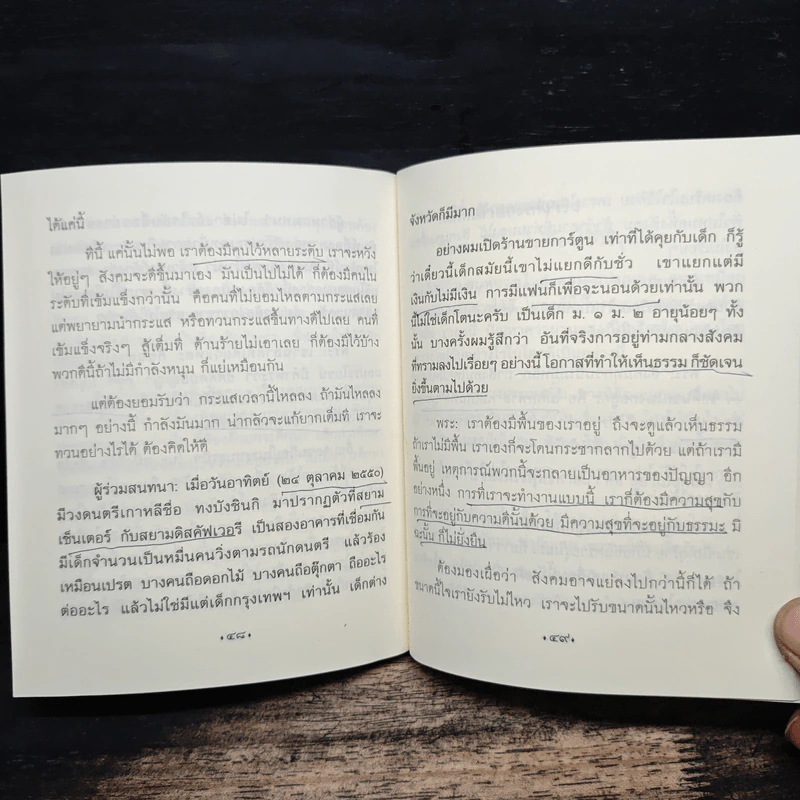 ได้แค่นี้
ทีนี้ แค่นั้นไม่พอ เราต้องมีคนไว้หลายระดับ เราจะหวัง
ให้อยู่ๆ สังคมจะดีขึ้นมาเอง มันเป็นไปไม่ได้ ก็ต้องมีคนใน
ระดับที่เข้มแข็งกว่านั้น คือคนที่ไม่ยอมไหลตามกระแสเลย
แต่พยายามนำกระแส หรือทวนกระแสขึ้นทางดีไปเลย คนที่
เข้มแข็งจริงๆ สู้เต็มที่ ต้านร้ายไม่เอาเลย ก็ต้องมีไว้บ้าง
พวกดีนี้ถ้าไม่มีกำลังหนุน ก็แย่เหมือนกัน
แต่ต้องยอมรับว่า กระแสเวลานี้ไหลลง ถ้ามันไหลลง
มากๆ อย่างนี้ กำลังมันมาก น่ากลัวจะแก้ยากเต็มที่ เราจะ
ทวนอย่างไรได้ ต้องคิดให้ดี
ผู้ร่วมสนทนา: เมื่อวันอาทิตย์ (๒๔ ตุลาคม ๒๕๕๐)
มีวงดนตรีเกาหลีชื่อ ทงบังชินกิ มาปรากฏตัวที่สยาม
เซ็นเตอร์ กับสยามดิสคัฟเวอรี เป็นสองอาคารที่เชื่อมกัน
มีเด็กจำนวนเป็นหมื่นคนวิ่งตามรถนักดนตรี แล้วร้อง
เหมือนเปรต บางคนถือดอกไม้ บางคนถือตุ๊กตา ถืออะไร
ต่ออะไร แล้วไม่ใช่มีแต่เด็กกรุงเทพฯ เท่านั้น เด็กต่าง
๔๘
จังหวัดก็มีมาก
อย่างผมเปิดร้านขายการ์ตูน เท่าที่ได้คุยกับเด็ก ก็รู้
ว่าเดี๋ยวนี้เด็กสมัยนี้เขาไม่แยกดีกับชั่ว เขาแยกแต่มี
เงินกับไม่มีเงิน การมีแฟนก็เพื่อจะนอนด้วยเท่านั้น พวก
นี้ไม่ใช่เด็กโตนะครับ เป็นเด็ก ม. ๑ ม. ๒ อายุน้อยๆ ทั้ง
นั้น บางครั้งผมรู้สึกว่า อันที่จริงการอยู่ท่ามกลางสังคม
ที่ทรามลงไปเรื่อยๆ อย่างนี้ โอกาสที่ทำให้เห็นธรรม ก็ชัดเจน
ยิ่งขึ้นตามไปด้วย
พระ: เราต้องมีพื้นของเราอยู่ ถึงจะดูแล้วเห็นธรรม
ถ้าเราไม่มีพื้น เราเองก็จะโดนกระชากลากไปด้วย แต่ถ้าเรามี
พื้นอยู่ เหตุการณ์พวกนี้จะกลายเป็นอาหารของปัญญา อีก
อย่างหนึ่ง การที่เราจะทำงานแบบนี้ เราก็ต้องมีความสุขกับ
การที่จะอยู่กับความดีนั้นด้วย มีความสุขที่จะอยู่กับธรรมะ มิ
ฉะนั้น ก็ไม่ยั่งยืน
ต้องมองเผื่อว่า สังคมอาจแย่ลงไปกว่านี้ก็ได้ ถ้า
ขนาดนี้ใจเรายังรับไม่ไหว เราจะไปรับขนาดนั้นไหวหรือ จึง
๔๙